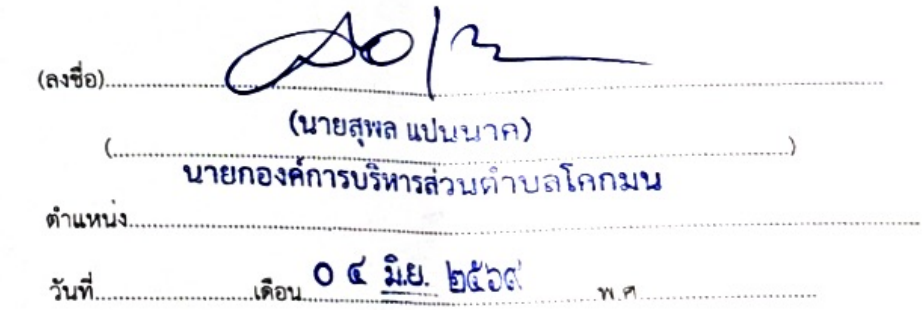 (ลงชื่อ)
(นายสุพล แปนนาค)
(....................)
นายกองค์การบริหารส่วนตำบลโคกมน
ตำแหน่ง
วันที่ เดือน ๐ ๔ มิ.ย. ๒๕๖๙ พ.ศ.